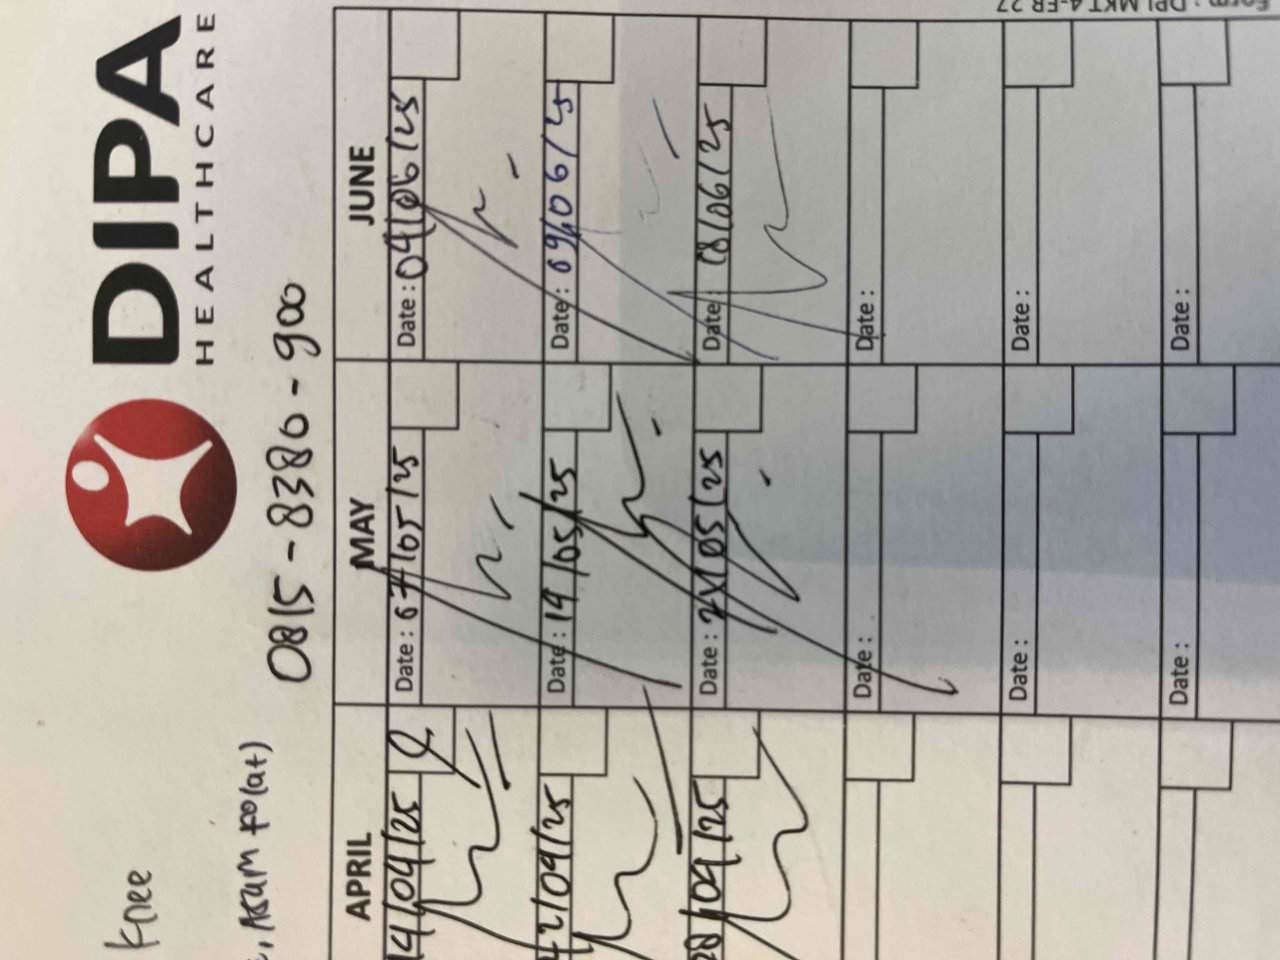 Form : DPI.MKT.4-FR.27
DIPA
HEALTHCARE
Knee
0815-8380-900
APRIL MAY JUNE
14/04/25 Date : 07/05/25 Date : 04/06/25
22/04/25 Date : 19/05/25 Date : 09/06/25
28/04/25 Date : /05/25 Date : 18/06/25
Date : Date :
Date : Date :
Date : Date :